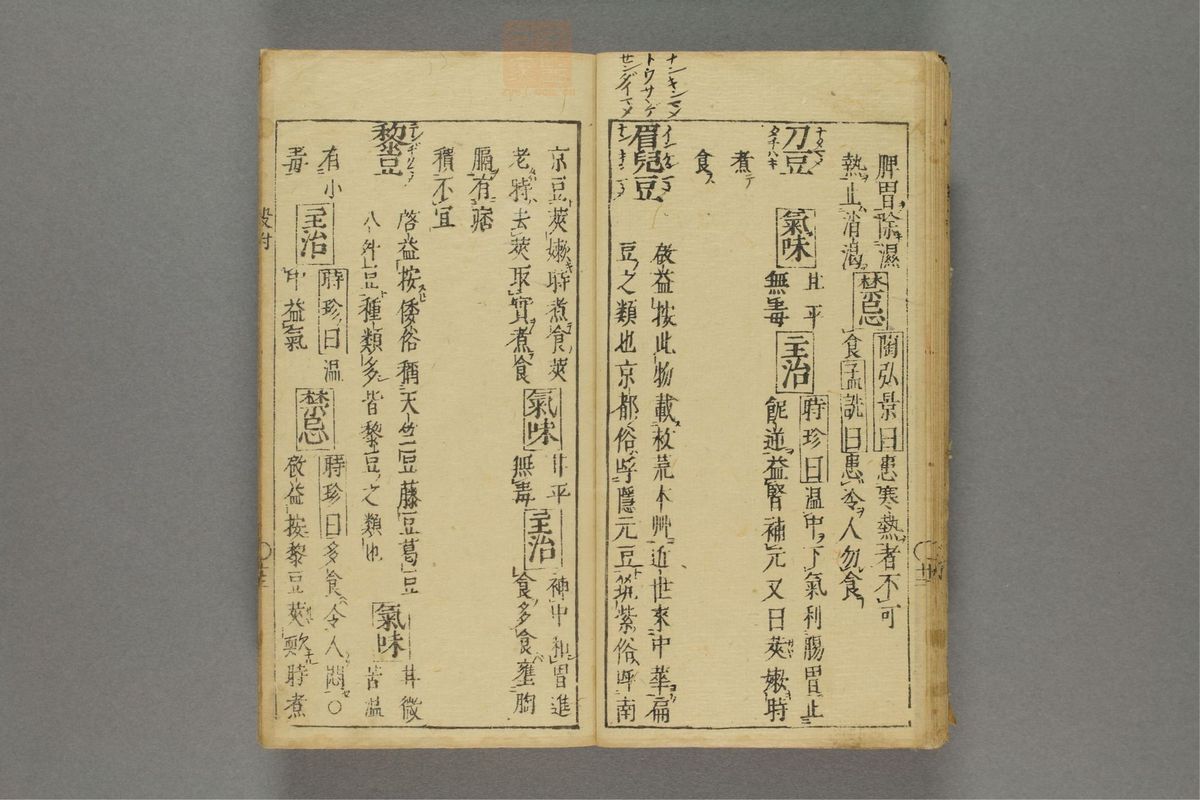 脾胃除濕
熱止消渴
禁忌
陶弘景曰患寒熱者不可
食孟詵曰患冷人勿食
ナタマメ
刀豆
タチハキ
氣味
甘平
無毒
主治
時珍曰温中下氣利腸胃止
呃逆益腎補元又曰莢嫩時
煮テ
食ス
ナンキンマメ
トウサヽゲ
センダイマメ
眉兒豆
啓益按此物載救荒本艸近世來中華扁
豆之類也京都俗呼隱元豆筑紫俗呼南
京豆莢嫩時煮食莢
老時去莢取實煮食
氣味
甘平
無毒
主治
補中和胃進
食多食壅胸
膈有痞
積不宜
黎豆
啓益按倭俗稱天竺豆藤豆葛豆
八升豆種類多皆黎豆之類也
氣味
甘微
苦温
有小
毒
主治
時珍曰温
中益氣
禁忌
時珍曰多食令人悶○
啓益按黎豆莢軟時煮